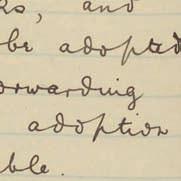 and
be adopted
forwarding
adoption